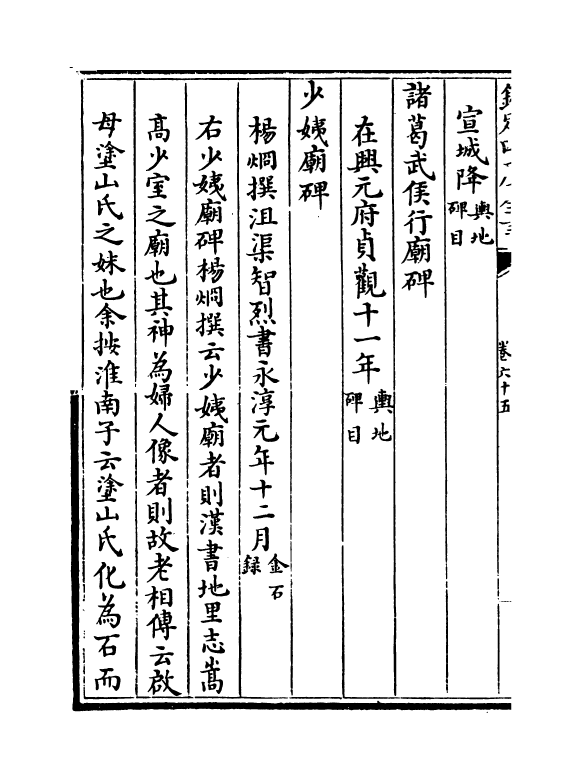 卷六十五
宣城降輿地碑目
諸葛武侯行廟碑
在興元府貞觀十一年輿地碑目
少姨廟碑
楊烱撰沮渠智烈書永淳元年十二月金石錄
右少姨廟碑楊烱撰云少姨廟者則漢書地里志嵩
髙少室之廟也其神為婦人像者則故老相傳云啟
母塗山氏之妹也余按淮南子云塗山氏化為石而